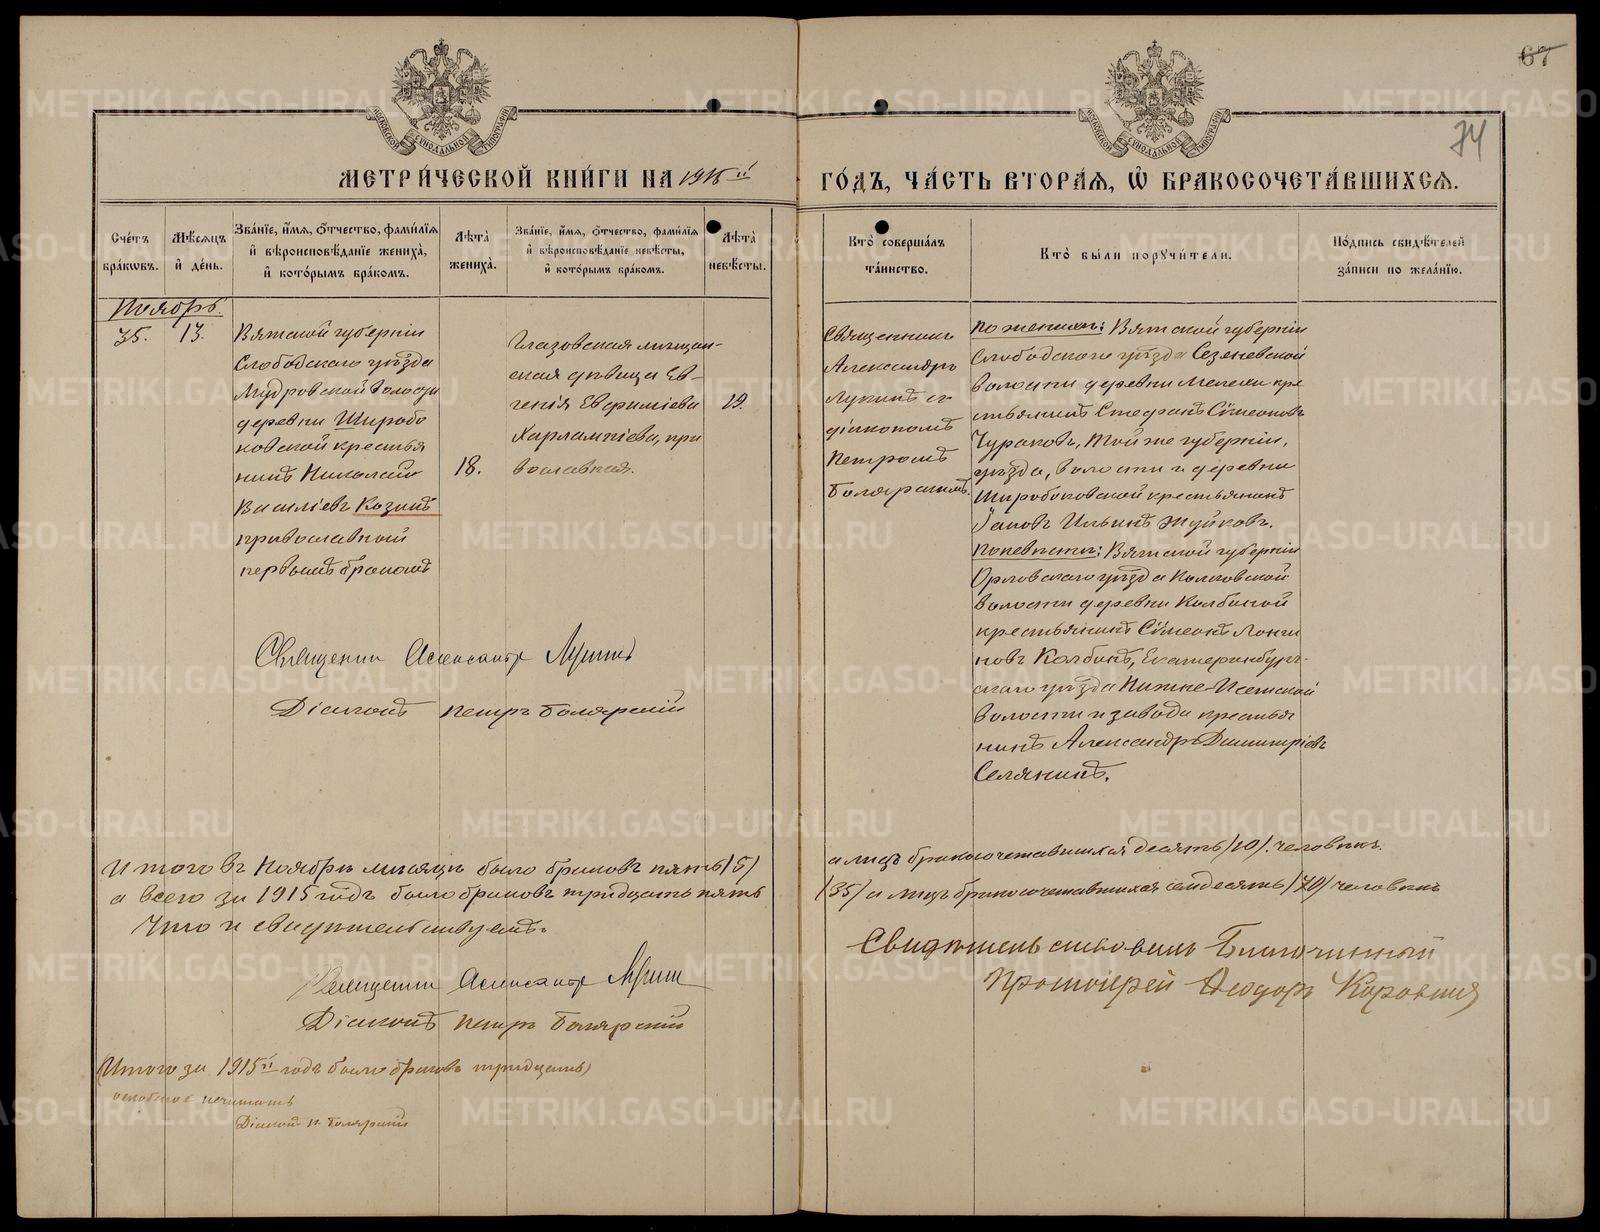 67
74
МЕТРИ́ЧЕСКОЙ КНИ́ГИ НА 1915 й ГО́ДЪ, ЧА́СТЬ ВТОРА́Я, Ѡ БРАКОСОЧЕТА́ВШИХСЯ.
Сче́тъ бра́кωвъ.
Мѣ́сяцъ и де́нь.
Зва́нїе, и́мя, ѻ́тчество, фами́лїя и вѣроисповѣ́данїе жениха̀, и кото́рымъ бра́комъ.
Лѣ́та жениха̀.
Зва́нїе, и́мя, ѻ́тчество, фами́лїя и вѣроисповѣ́данїе невѣ́сты, и кото́рымъ бра́комъ.
Лѣ́та невѣ́сты.
Кто̀ соверша́лъ та́инство.
Кто̀ бы́ли поручи́тели.
По́дпись свидѣ́телей за́писи по жела́нїю.
Ноябрь.
35.
13.
Вятской губернiи
Слободскаго уѣзда
Мудровской волости
деревни Широбо
ковской крестья
нинъ Николай
Василiевъ Козинъ
православной
первымъ бракомъ
18.
Глазовская мѣщан-
ская дѣвица Ев-
генiя Евфимiева
Харлампiева, пра
вославная.
19.
Священникъ
Александръ
Лукинъ съ
дiакономъ
Петромъ
Боярскимъ.
По женихѣ: Вятской губернiи
Слободскаго уѣзда Сезеневской
волости деревни кре
стьянинъ Стефанъ Сѵмеоновъ
Чураковъ, той же губернiи,
уѣзда, волости и деревни
Широбоковской крестьянинъ
Iаковъ Ильинъ Жуйковъ.
По невѣстѣ: Вятской губернiи
Орловскаго уѣзда
волости деревни Колбиной
крестьянинъ Сѵмеонъ Лонги
новъ Колбинъ, Екатеринбург-
скаго уѣзда Нижне-Исетской
волости и завода крестья
нинъ Александръ Димитрiевъ
Селянинъ.
Священник Александр Лукинъ
Дiаконъ Петръ Боярскiй
Итого въ Ноябрѣ мѣсяцѣ было браковъ пять /5/ а лицъ бракосочетавшихся десять /10/ человѣкъ.
а всего за 1915 годъ было браковъ тридцать пять /35/ а лицъ бракосочетавшихся семдесятъ /70/ человѣкъ
Что и свидѣтельствуемъ.
Священник Александр Лукин
Дiаконъ Петръ Боярскiй
Свидѣтельствовалъ Благочинный
Протоiерей Ѳеодоръ
Итого за 1915 й годъ было браковъ тридцать
Дiакон П. Боярскiй
METRIKI.GASO-URAL.RU